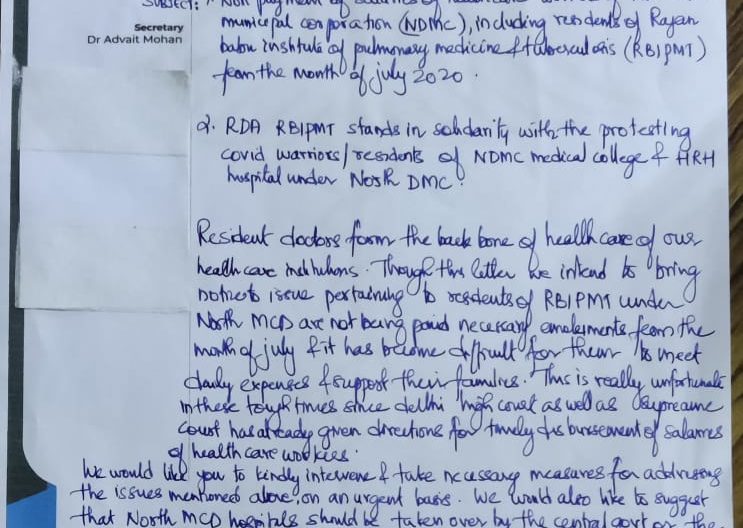 SUBJECT: 1. Non payment of salaries of healthcare workers
Secretary
Dr Advait Mohan
municipal corporation (NDMC), including residents of Rajan
babu institute of pulmonary medicine & tuberculosis (RBIPMT)
from the month of july 2020.
2. RDA RBIPMT stands in solidarity with the protesting
covid warriors/residents of NDMC medical college & HRH
hospital under North DMC.
Resident doctors form the back bone of health care of our
health care institutions. Through this letter we intend to bring
notice issue pertaining to residents of RBIPMT under
North MCD are not being paid necessary emoluments from the
month of july & it has become difficult for them to meet
daily expenses & support their families. This is really unfortunate
in these tough times since delhi high court as well as supreame
court has already given directions for timely disbursement of salaries
of health care workers.
We would like you to kindly intervene & take necessary measures for addressing
the issues mentioned above, on an urgent basis. We would also like to suggest
that North MCD hospitals should be taken over by the central govt or the